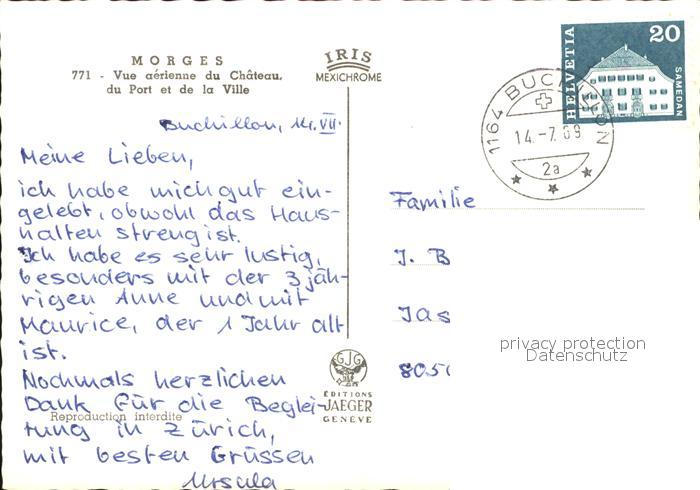 MORGES
771 - Vue aérienne du Château,
du Port et de la Ville
IRIS
MEXICHROME
HELVETIA
20
SAMEDAN
1164 BUCHILLON
14.-7.69
2a
Buchillon, 14.VII.
Meine Lieben,
ich habe mich gut ein-
gelebt, obwohl das Haus-
halten streng ist.
Ich habe es sehr lustig,
besonders mit der 3 jäh-
rigen Anne und mit
Maurice, der 1 Jahr alt
ist.
Nochmals herzlichen
Dank für die Beglei-
tung in Zürich,
mit besten Grüssen
Ursula
Reproduction interdite
GJG
ÉDITIONS
JAEGER
GENÈVE
Familie
J. B
Jas
805
privacy protection
Datenschutz